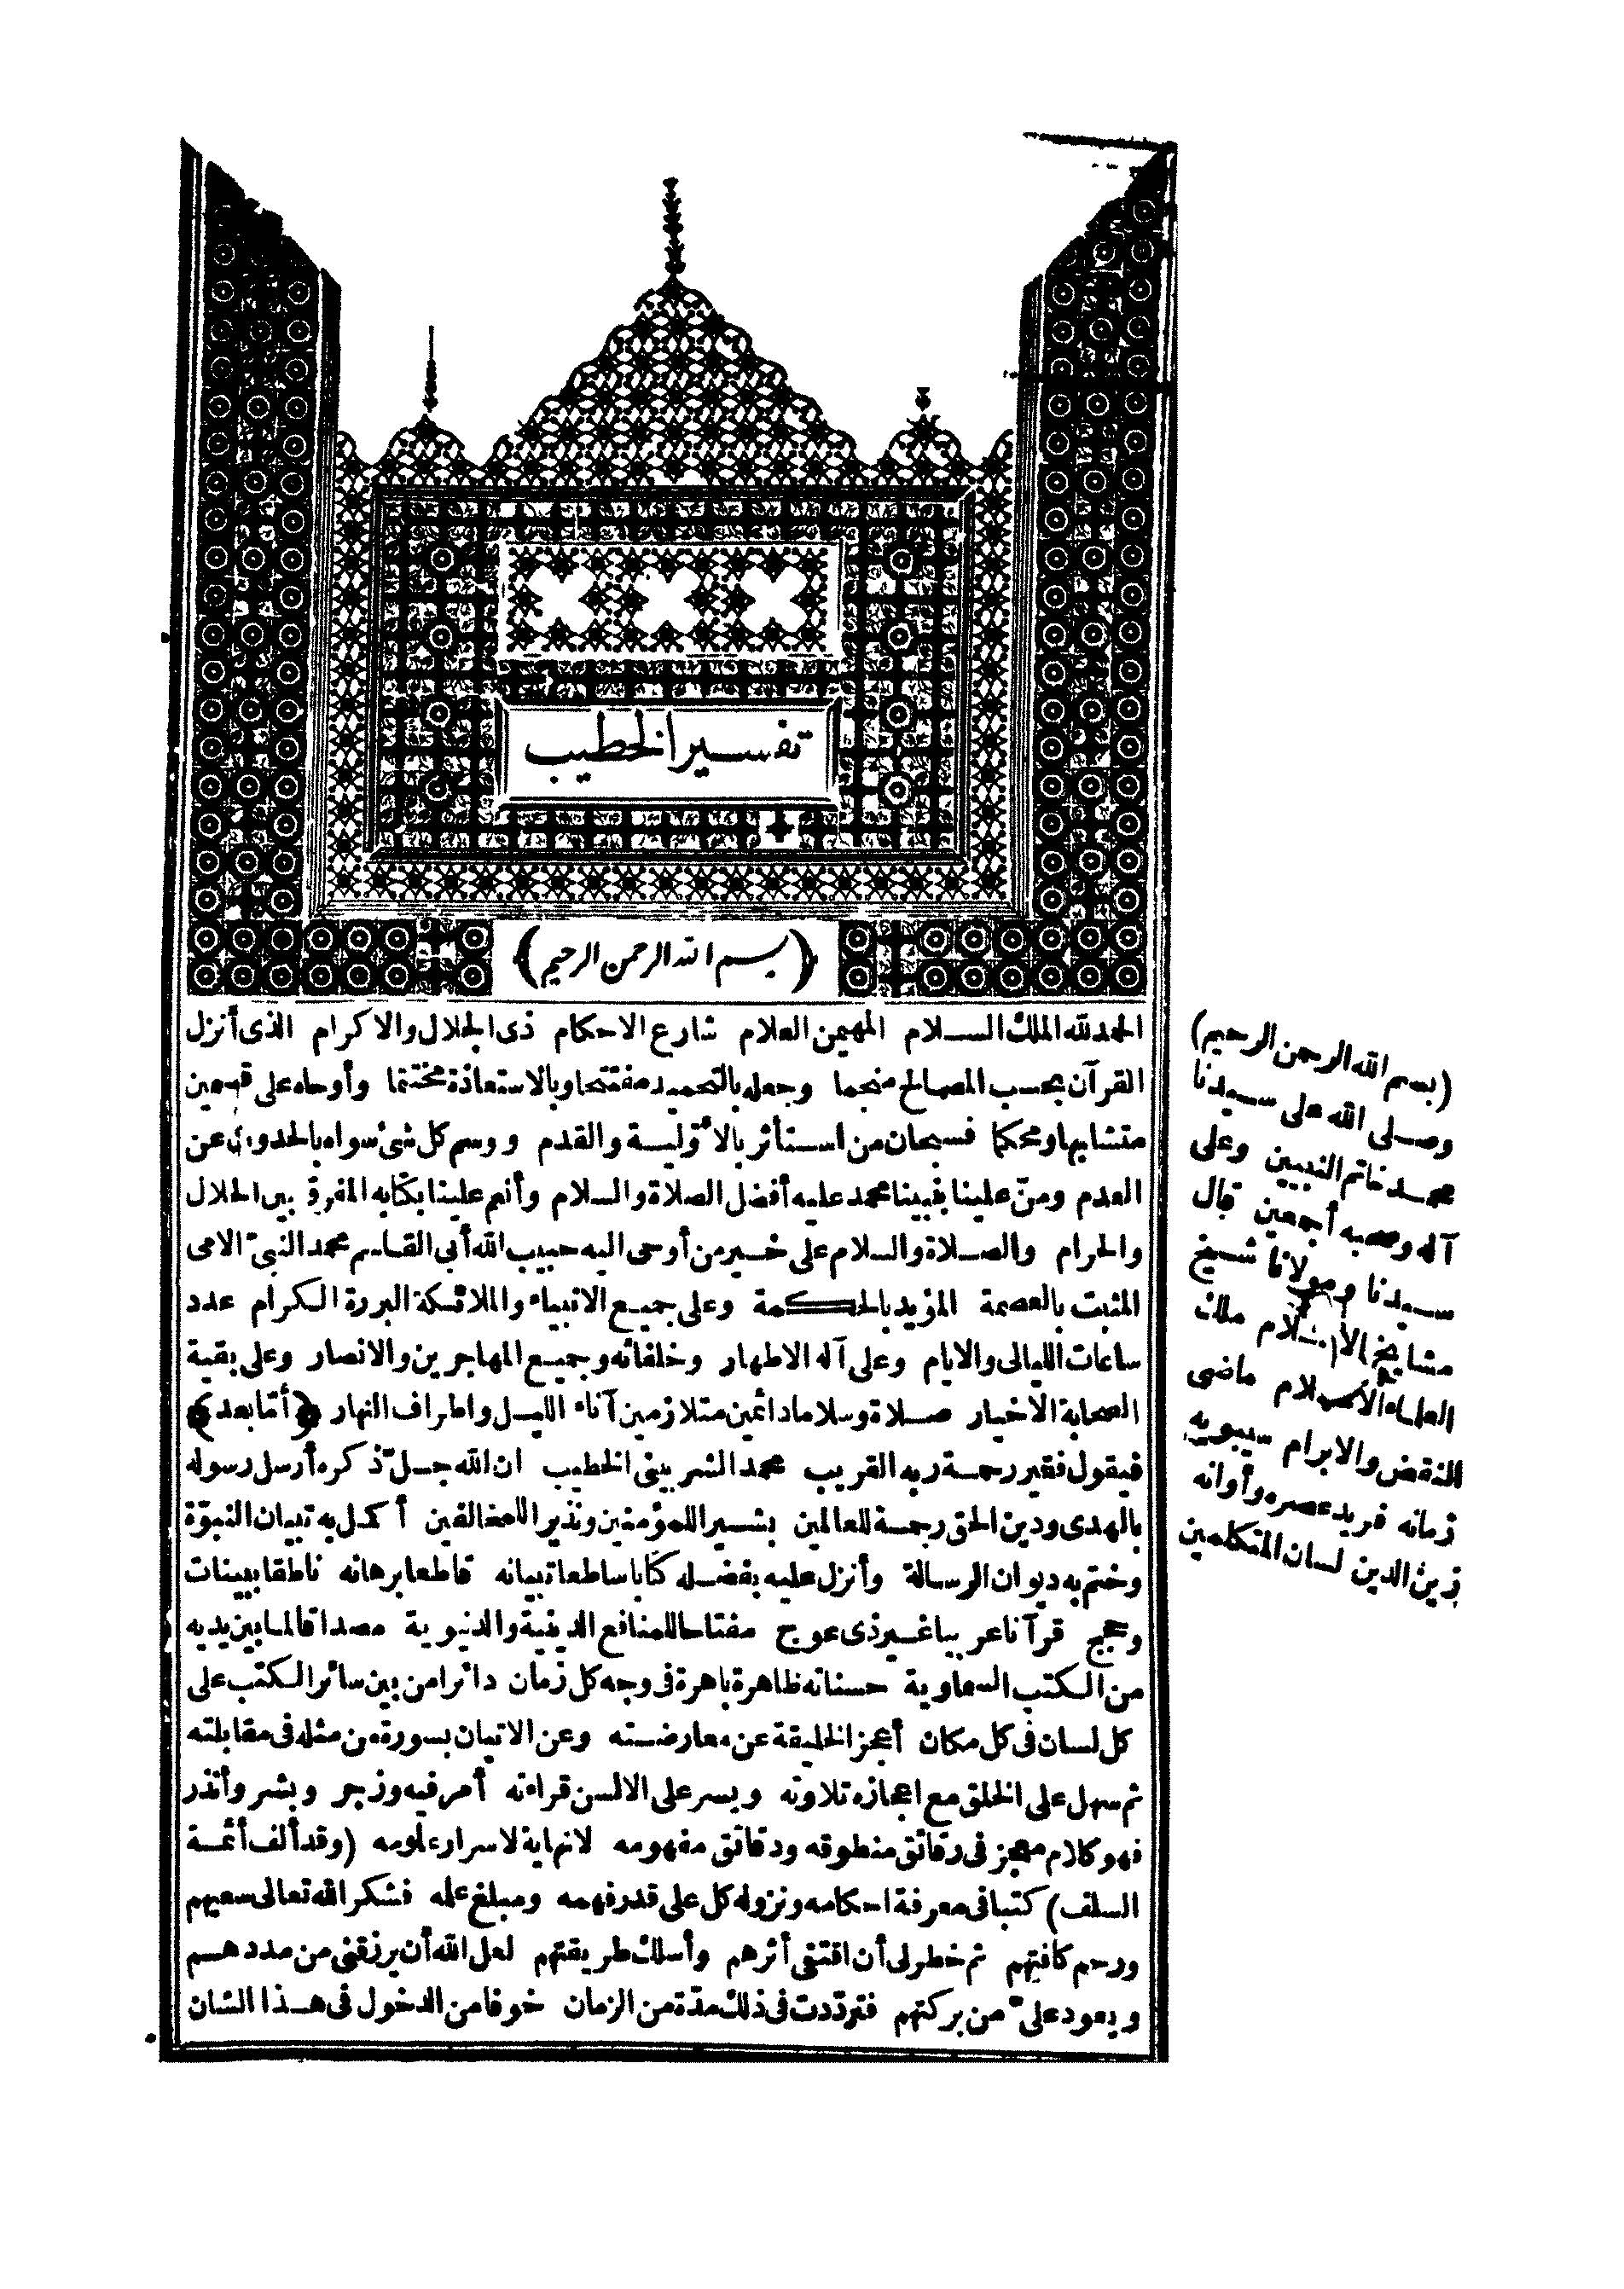 تفسير الخطيب
﴿بسم الله الرحمن الرحيم﴾
الحمد لله الملك السلام المهيمن العلام شارع الاحكام ذى الجلال والاكرام الذى أنزل
القرآن بحسب المصالح منجما وجعله بالتحميد مفتتحا وبالاستعاذة مختتما وأوحاه على قسمين
متشابها ومحكما فسبحان من استأثر بالأوّلية والقدم ووسم كل شئ سواه بالحدوث عن
العدم ومنّ علينا بنبينا محمد عليه أفضل الصلاة والسلام وأنعم علينا بكتابه المفرق بين الحلال
والحرام والصلاة والسلام على خير من أوحى اليه حبيب الله أبي القاسم محمد النبىّ الامى
المثبت بالعصمة المؤيد بالحكمة وعلى جميع الانبياء والملائكة البررة الكرام عدد
ساعات الليالى والايام وعلى آله الاطهار وخلفائه وجميع المهاجرين والانصار وعلى بقية
الصحابة الاخيار صلاة وسلاما دائمين متلازمين آناء الليل واطراف النهار ﴿أمّا بعد﴾
فيقول فقير رحمة ربه القريب محمد الشربينى الخطيب ان الله جلّ ذكره أرسل رسوله
بالهدى ودين الحق رحمة للعالمين بشيرا للمؤمنين ونذيرا للمخالفين أكمل به تبيان النبوّة
وختم به ديوان الرسالة وأنزل عليه بفضله كتابا ساطعا تبيانه قاطعا برهانه ناطقا ببينات
وحجج قرآنا عربيا غير ذى عوج مفتاحا للمنافع الدينية والدنيوية مصداقا لما بين يديه
من الكتب السماوية حسناته ظاهرة باهرة فى وجه كل زمان دائرا من بين سائر الكتب على
كل لسان فى كل مكان أعجز الخليقة عن معارضته وعن الاتيان بسورة من مثله فى مقابلته
ثم سهل على الخلق مع اعجازه تلاوته ويسر على الالسن قراءته أمر فيه وزجر وبشر وأنذر
فهو كلام معجز فى رقائق منطوقه ودقائق مفهومه لا نهاية لاسرار علومه (وقد ألف أئمة
السلف) كتبا فى معرفة احكامه ونزوله كل على قدر فهمه ومبلغ علمه فشكر الله تعالى سعيهم
ورحم كافتهم ثم خطر لى أن اقتفى أثرهم وأسلك طريقتهم لعل الله أن يرزقنى من مددهم
ويعود علىّ من بركتهم فتردّدت فى ذلك مدّة من الزمان خوفا من الدخول فى هذا الشان
(بسم الله الرحمن الرحيم)
وصلى الله على سيدنا
محمد خاتم النبيين وعلى
آله وصحبه أجمعين قال
سيدنا ومولانا شيخ
مشايخ الاسلام ملك
العلماء الاعلام ماضى
النقض والابرام سيبويه
زمانه فريد عصره وأوانه
زين الدين لسان المتكلمين